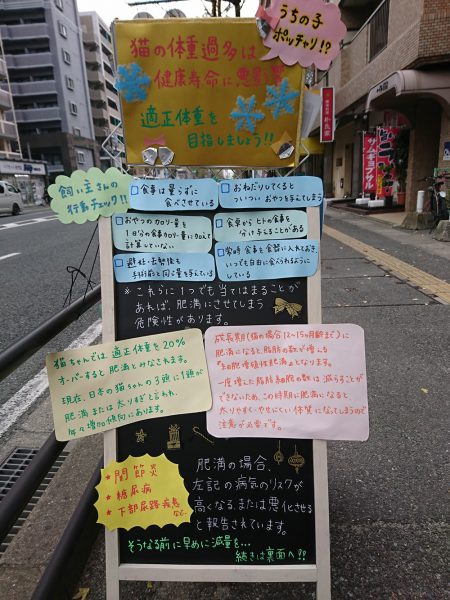 うちの子
ポッチャリ!?
猫の体重過多は
健康寿命に悪影響
適正体重を
目指しましょう!!
飼い主さんの
行動チェック!!
食事は量らずに
食べさせている
おねだりしてくると
ついつい おやつを与えてしまう
おやつのカロリー量を
1日分の食事カロリー量に加えて
計算していない
食卓から ヒトの食事を
分け与えることがある
避妊・去勢後も
手術前と同じ量を与えている
常時 食事を食器に入れておき、
いつでも自由に食べられるように
している
※これらに1つでも当てはまることが
あれば、肥満にさせてしまう
危険性があります。
猫ちゃんでは、適正体重を20%
オーバーすると肥満とみなされます。
現在、日本の猫ちゃんの3頭に1頭が
肥満または太りすぎと言われ、
年々増加傾向にあります。
成長期(猫の場合12〜15ヵ月齢まで)に
肥満になると脂肪の数が増える
『細胞増殖性肥満』となります。
一度増えた脂肪細胞の数は減らすことが
できないため、この時期に肥満になると
太りやすい・やせにくい体質になってしまうので
注意が必要です。
★関節炎
★糖尿病
★下部尿路疾患
など…
肥満の場合、
左記の病気のリスクが
高くなる、または悪化させる
と報告されています。
そうなる前に早めに減量を…
続きは裏面へ!!
サムギョプサル